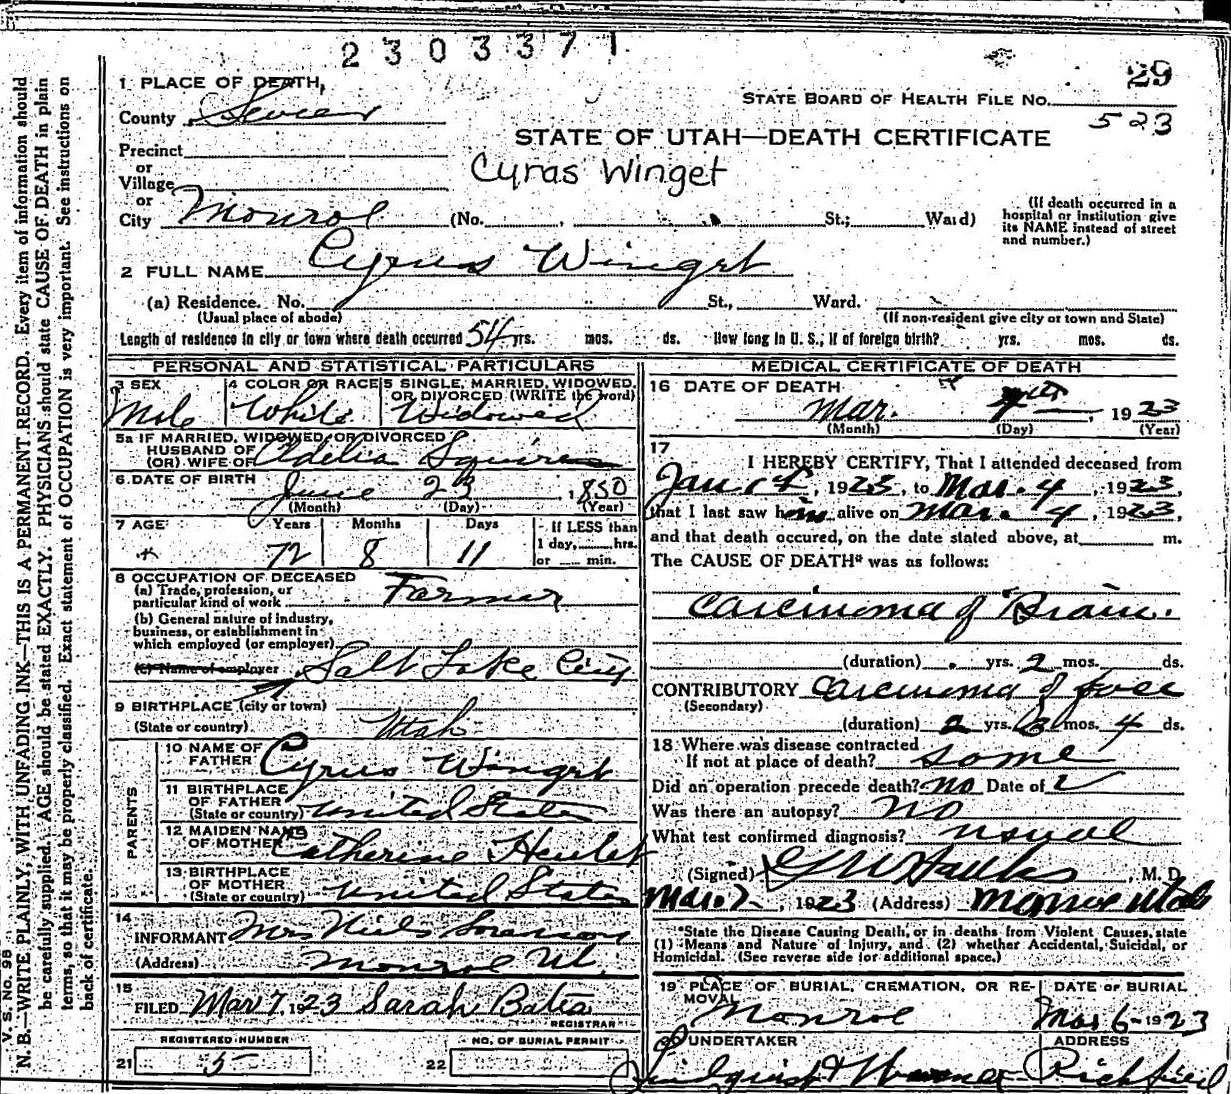 2303371
29
1 PLACE OF DEATH,
STATE BOARD OF HEALTH FILE No.
523
County Sevier
STATE OF UTAH—DEATH CERTIFICATE
Precinct
Cyras Winget
or
Village
or
City Monroe (No. , St.; Ward)
(If death occurred in a
hospital or institution give
its NAME instead of street
and number.)
2 FULL NAME Cyrus Winget
(a) Residence. No. St., Ward.
(Usual place of abode) (If non-resident give city or town and State)
Length of residence in city or town where death occurred 54 yrs. mos. ds. How long in U. S., if of foreign birth? yrs. mos. ds.
PERSONAL AND STATISTICAL PARTICULARS
3 SEX 4 COLOR OR RACE 5 SINGLE, MARRIED, WIDOWED,
OR DIVORCED (WRITE the word)
Male White Widowed
5a IF MARRIED, WIDOWED, OR DIVORCED
HUSBAND OF
(OR) WIFE OF Adelia Squires
6 DATE OF BIRTH June 23, 1850
(Month) (Day) (Year)
7 AGE Years Months Days If LESS than
1 day, hrs.
72 8 11 or min.
8 OCCUPATION OF DECEASED
(a) Trade, profession, or
particular kind of work Farmer
(b) General nature of industry,
business, or establishment in
which employed (or employer)
(c) Name of employer Salt Lake City
9 BIRTHPLACE (city or town)
(State or country) Utah
PARENTS
10 NAME OF
FATHER Cyrus Winget
11 BIRTHPLACE
OF FATHER
(State or country) United States
12 MAIDEN NAME
OF MOTHER Catherine Hewlet
13 BIRTHPLACE
OF MOTHER
(State or country) United States
14
INFORMANT Mrs Niels Sorenson
(Address) Monroe Ut.
15
FILED Mar 7, 1923 Sarah Bates
REGISTRAR
REGISTERED NUMBER NO. OF BURIAL PERMIT
21 5 22
MEDICAL CERTIFICATE OF DEATH
16 DATE OF DEATH
Mar. 4th, 1923
(Month) (Day) (Year)
17
I HEREBY CERTIFY, That I attended deceased from
Jan 1st, 1923, to Mar. 4, 1923,
that I last saw him alive on Mar. 4, 1923,
and that death occured, on the date stated above, at m.
The CAUSE OF DEATH* was as follows:
Carcinoma of Brain.
(duration) yrs. 2 mos. ds.
CONTRIBUTORY Carcinoma of face
(Secondary)
(duration) 2 yrs. 6 mos. 4 ds.
18 Where was disease contracted
If not at place of death? same
Did an operation precede death? no Date of
Was there an autopsy? no
What test confirmed diagnosis? usual
(Signed) , M. D.
Mar. 7, 1923 (Address) Monroe Utah
*State the Disease Causing Death, or in deaths from Violent Causes, state
(1) Means and Nature of Injury, and (2) whether Accidental, Suicidal, or
Homicidal. (See reverse side for additional space.)
19 PLACE OF BURIAL, CREMATION, OR RE- DATE OF BURIAL
MOVAL
Monroe Mar 6-1923
UNDERTAKER ADDRESS
Lindquist & Richfield
V. S. No. 98
N. B.—WRITE PLAINLY, WITH UNFADING INK—THIS IS A PERMANENT RECORD. Every item of information should
be carefully supplied. AGE should be stated EXACTLY. PHYSICIANS should state CAUSE OF DEATH in plain
terms, so that it may be properly classified. Exact statement of OCCUPATION is very important. See instructions on
back of certificate.